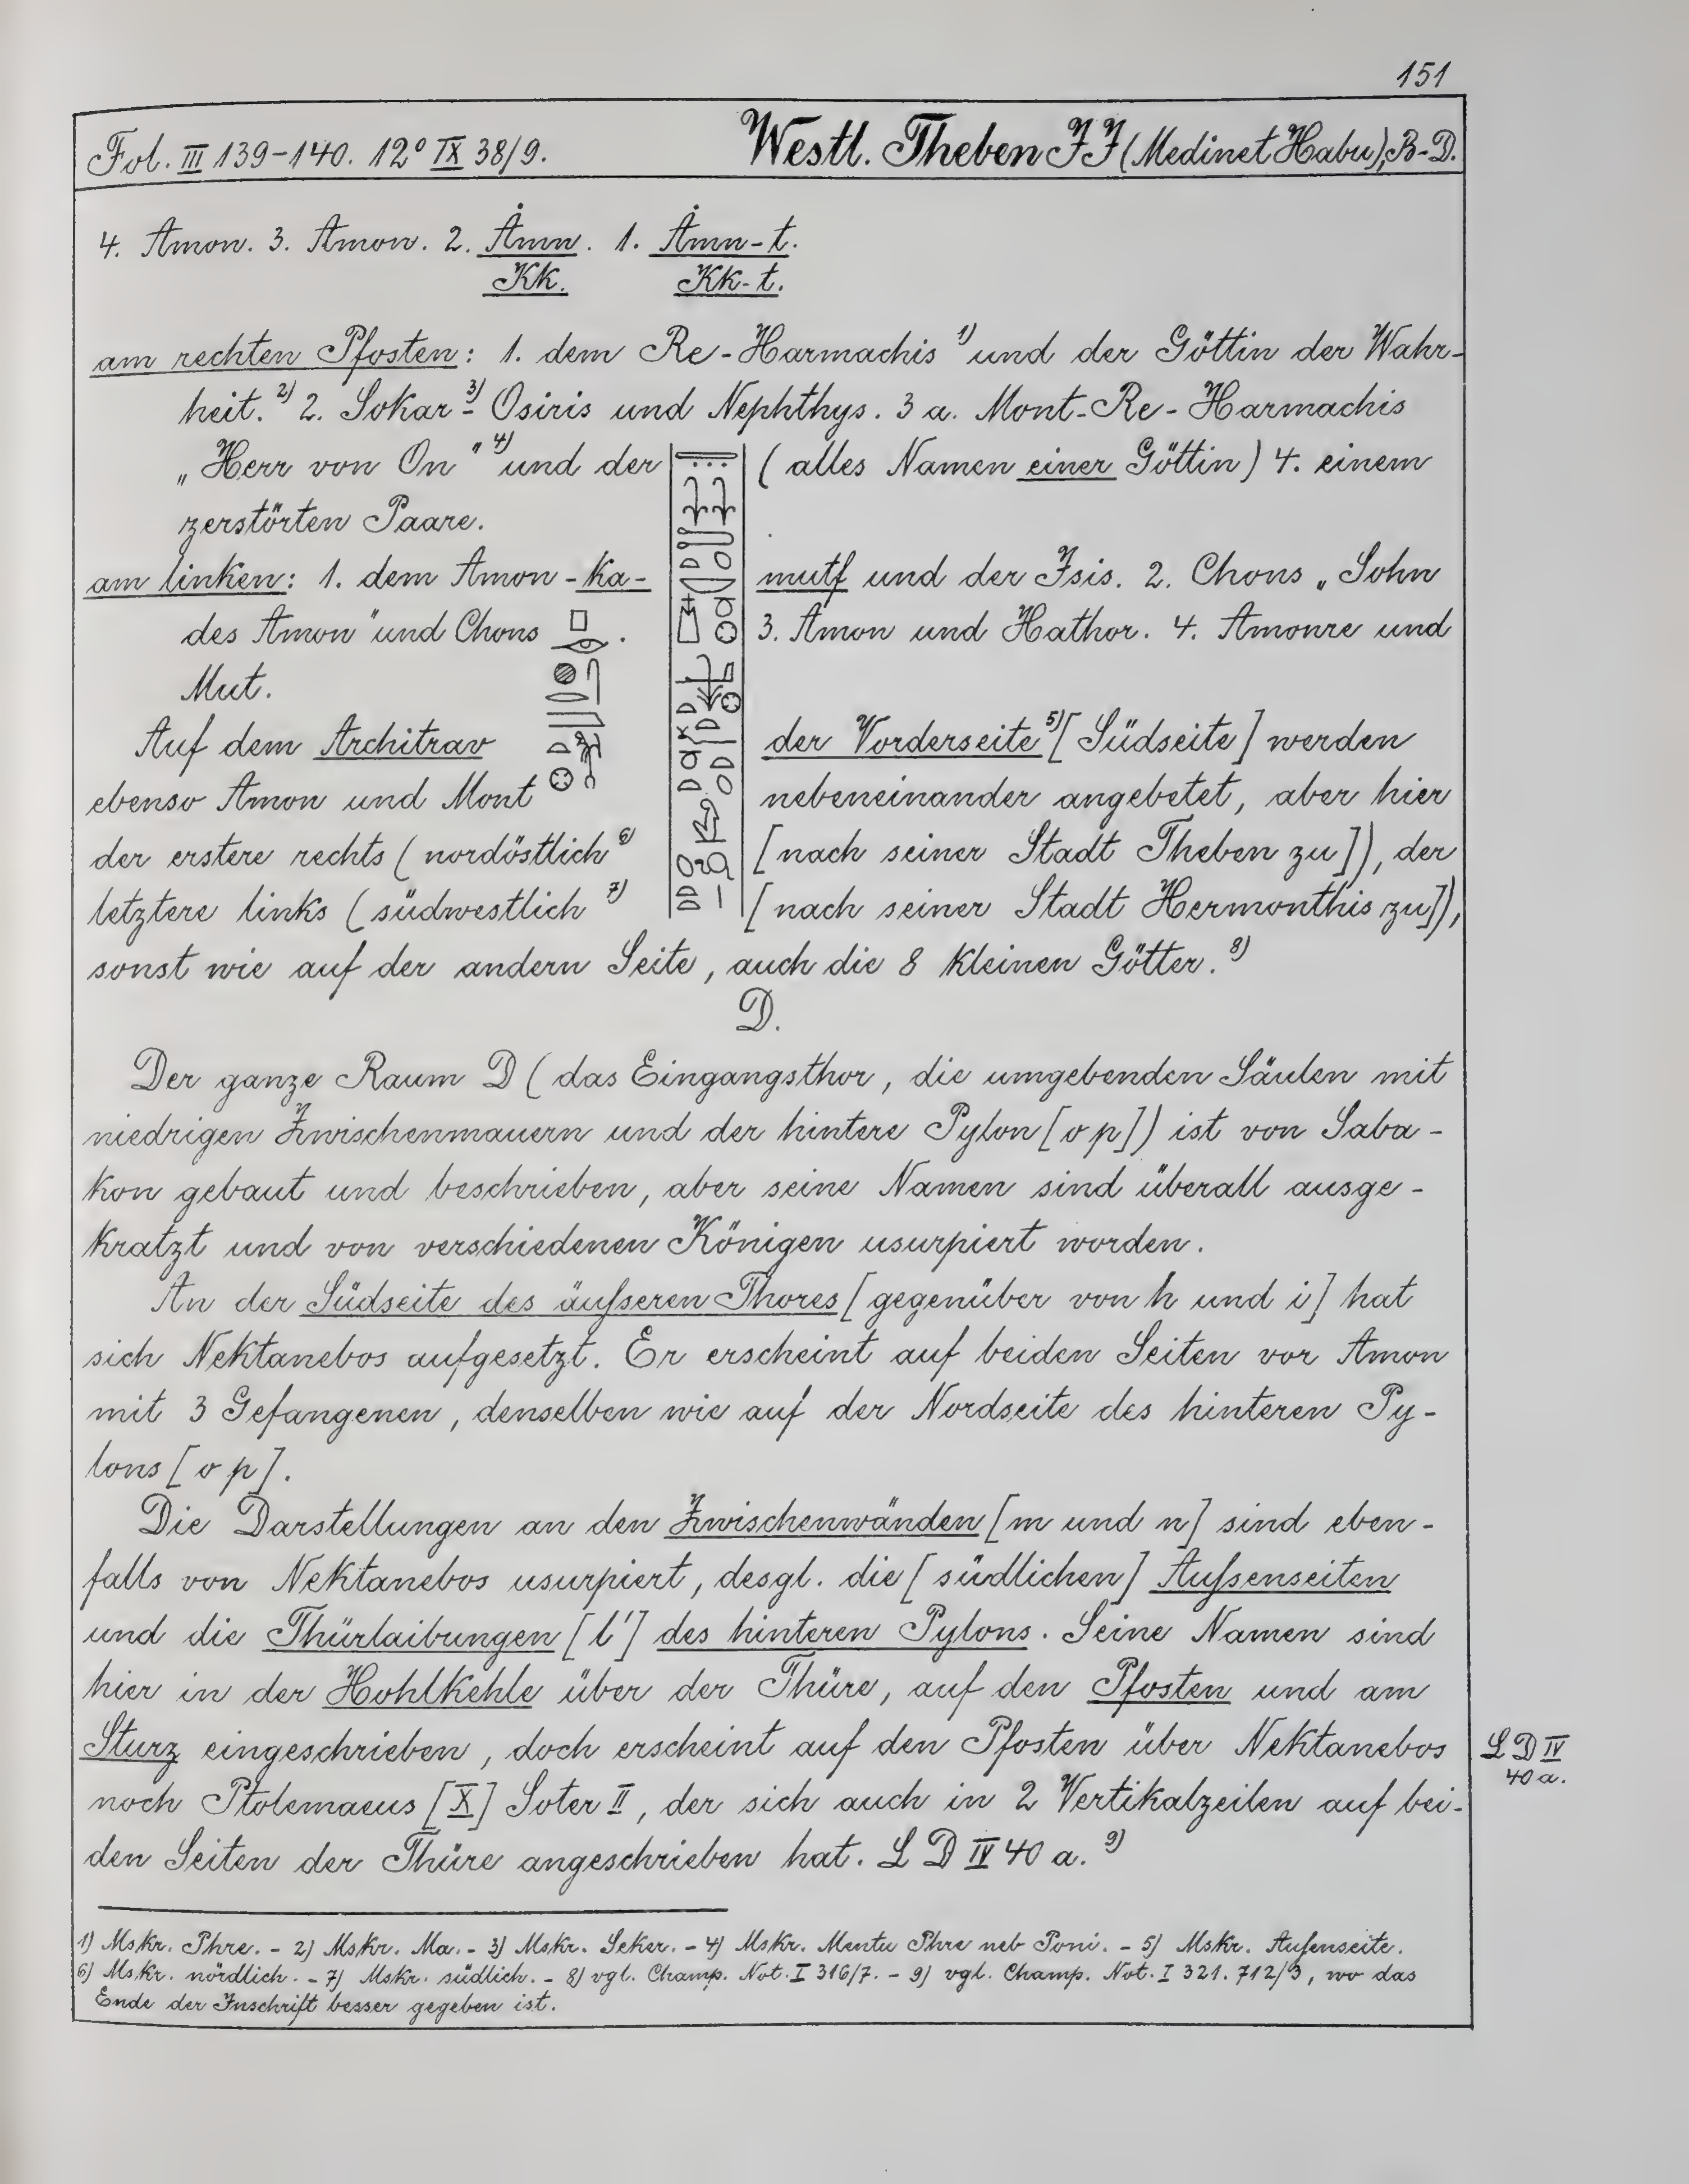 151
Fol. III 139-140. 12° IX 38/9. Westl. Theben JJ (Medinet Habu), B-D.
4. Amon. 3. Amon. 2. Ȧmn. 1. Ȧmn-t.
Kk. Kk-t.
am rechten Pfosten: 1. dem Re-Harmachis 1) und der Göttin der Wahr-
heit. 2) 2. Sokar 3)- Osiris und Nephthys. 3 a. Mont-Re-Harmachis
„Herr von On" 4) und der (alles Namen einer Göttin) 4. einem
zerstörten Paare.
am linken: 1. dem Amon-Ka-mutf und der Isis. 2. Chons „Sohn
des Amon" und Chons . 3. Amon und Hathor. 4. Amonre und
Mut.
Auf dem Architrav der Vorderseite 5) [Südseite] werden
ebenso Amon und Mont nebeneinander angebetet, aber hier
der erstere rechts (nordöstlich 6) [nach seiner Stadt Theben zu]), der
letztere links (südwestlich 7) [nach seiner Stadt Hermonthis zu]),
sonst wie auf der andern Seite, auch die 8 kleinen Götter. 8)
D.
Der ganze Raum D (das Eingangsthor, die umgebenden Säulen mit
niedrigen Zwischenmauern und der hintere Pylon [o p]) ist von Saba-
kon gebaut und beschrieben, aber seine Namen sind überall ausge-
kratzt und von verschiedenen Königen usurpiert worden.
An der Südseite des äufseren Thores [gegenüber von h und i] hat
sich Nektanebos aufgesetzt. Er erscheint auf beiden Seiten vor Amon
mit 3 Gefangenen, denselben wie auf der Nordseite des hinteren Py-
lons [o p].
Die Darstellungen an den Zwischenwänden [m und n] sind eben-
falls von Nektanebos usurpiert, desgl. die [südlichen] Aufsenseiten
und die Thürlaibungen [l'] des hinteren Pylons. Seine Namen sind
hier in der Hohlkehle über der Thüre, auf den Pfosten und am
Sturz eingeschrieben, doch erscheint auf den Pfosten über Nektanebos
noch Ptolemaeus [X] Soter II, der sich auch in 2 Vertikalzeilen auf bei-
den Seiten der Thüre angeschrieben hat. L D IV 40 a. 9)
L D IV
40 a.
1) Mskr. Phre. - 2) Mskr. Ma. - 3) Mskr. Seker. - 4) Mskr. Mentu Phre neb Poni. - 5) Mskr. Aufsenseite.
6) Mskr. nördlich. - 7) Mskr. südlich. - 8) vgl. Champ. Not. I 316/7. - 9) vgl. Champ. Not. I 321. 712/3, wo das
Ende der Inschrift besser gegeben ist.